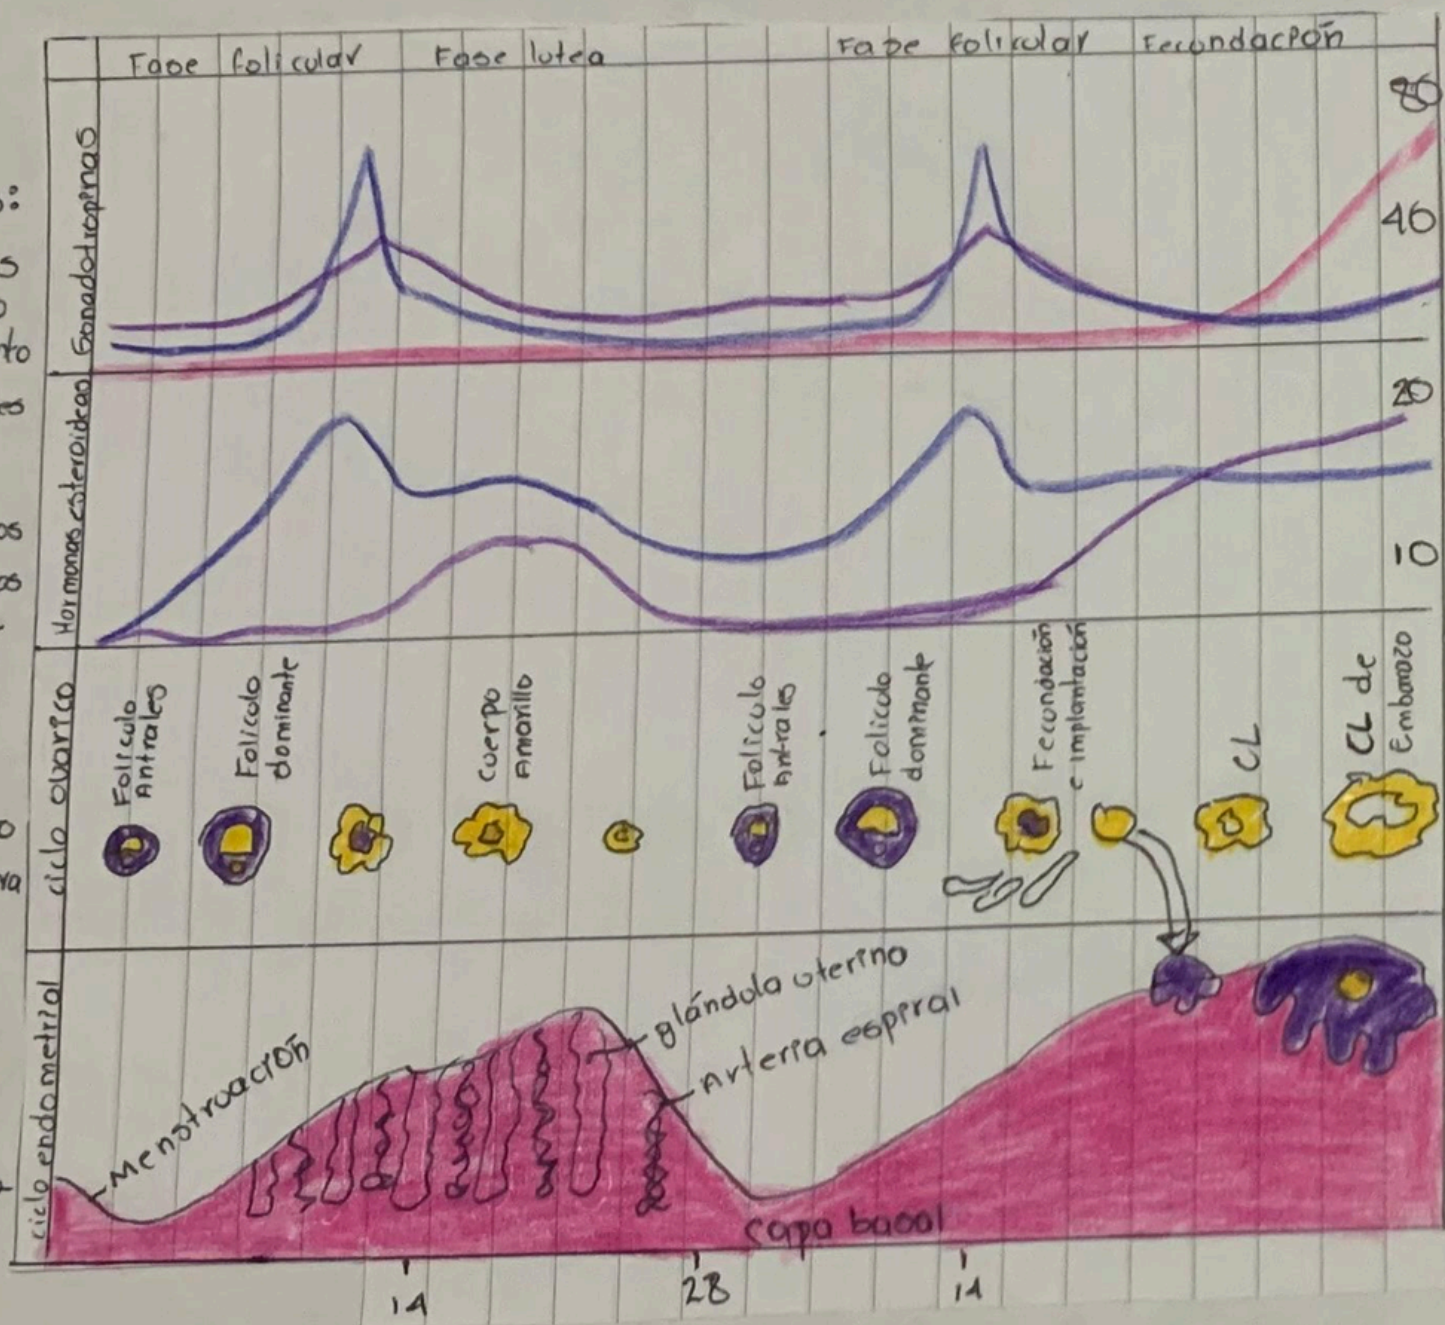 Fase folicular Fase lutea Fase folicular Fecundación
80
40
Gonadotropinas
20
10
Hormonas esteroideas
ciclo ovarico
Foliculo
Antrales
Foliculo
dominante
Cuerpo
Amarillo
Foliculo
Antrales
Foliculo
dominante
Fecundación
e implantación
CL
CL de
Embarazo
ciclo endometrial
Menstruación
glándula uterino
Arteria espiral
capa basal
14 28 14